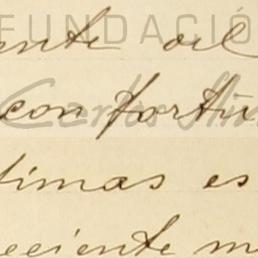 FUNDACIÓ
ente del
con fortu
timas es
eciente m